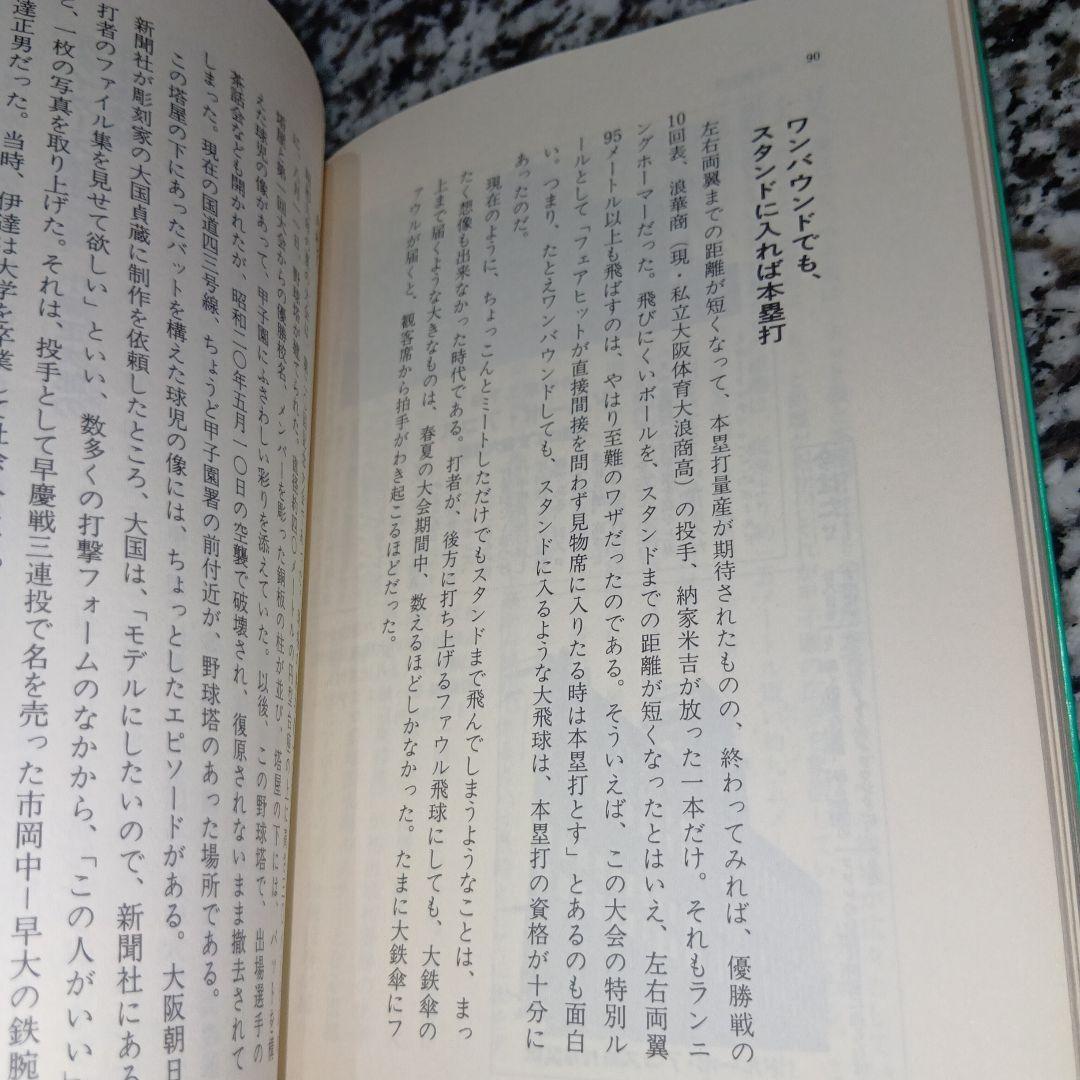 90
ワンバウンドでも、
スタンドに入れば本塁打
左右両翼までの距離が短くなって、本塁打量産が期待されたものの、終わってみれば、優勝戦の
10回表、浪華商（現・私立大阪体育大浪商高）の投手、納家米吉が放った一本だけ。それもランニ
ングホーマーだった。飛びにくいボールを、スタンドまでの距離が短くなったとはいえ、左右両翼
95メートル以上も飛ばすのは、やはり至難のワザだったのである。そういえば、この大会の特別ル
ールとして「フェアヒットが直接間接を問わず見物席に入りたる時は本塁打とす」とあるのも面白
い。つまり、たとえワンバウンドしても、スタンドに入るような大飛球は、本塁打の資格が十分に
あったのだ。
現在のように、ちょっこんとミートしただけでもスタンドまで飛んでしまうようなことは、まっ
たく想像も出来なかった時代である。打者が、後方に打ち上げるファウル飛球にしても、大鉄傘の
上まで届くような大きなものは、春夏の大会期間中、数えるほどしかなかった。たまに大鉄傘にフ
ァウルが届くと、観客席から拍手がわき起こるほどだった。
塔屋と第一回大会からの優勝校名、メンバーを彫った銅板の柱が並び、塔屋の下には、バットを構
えた球児の像があって、甲子園にふさわしい彩りを添えていた。以後、この野球塔で、出場選手の
茶話会なども開かれたが、昭和二〇年五月一〇日の空襲で破壊され、復原されないまま撤去されて
しまった。現在の国道四三号線、ちょうど甲子園署の前付近が、野球塔のあった場所である。
この塔屋の下にあったバットを構えた球児の像には、ちょっとしたエピソードがある。大阪朝日
新聞社が彫刻家の大国貞蔵に制作を依頼したところ、大国は、「モデルにしたいので、新聞社にある
打者のファイル集を見せて欲しい」といい、数多くの打撃フォームのなかから、「この人がいい」
と、一枚の写真を取り上げた。それは、投手として早慶戦三連投で名を売った市岡中ー早大の鉄腕
達正男だった。当時、伊達は大学を卒業して社会